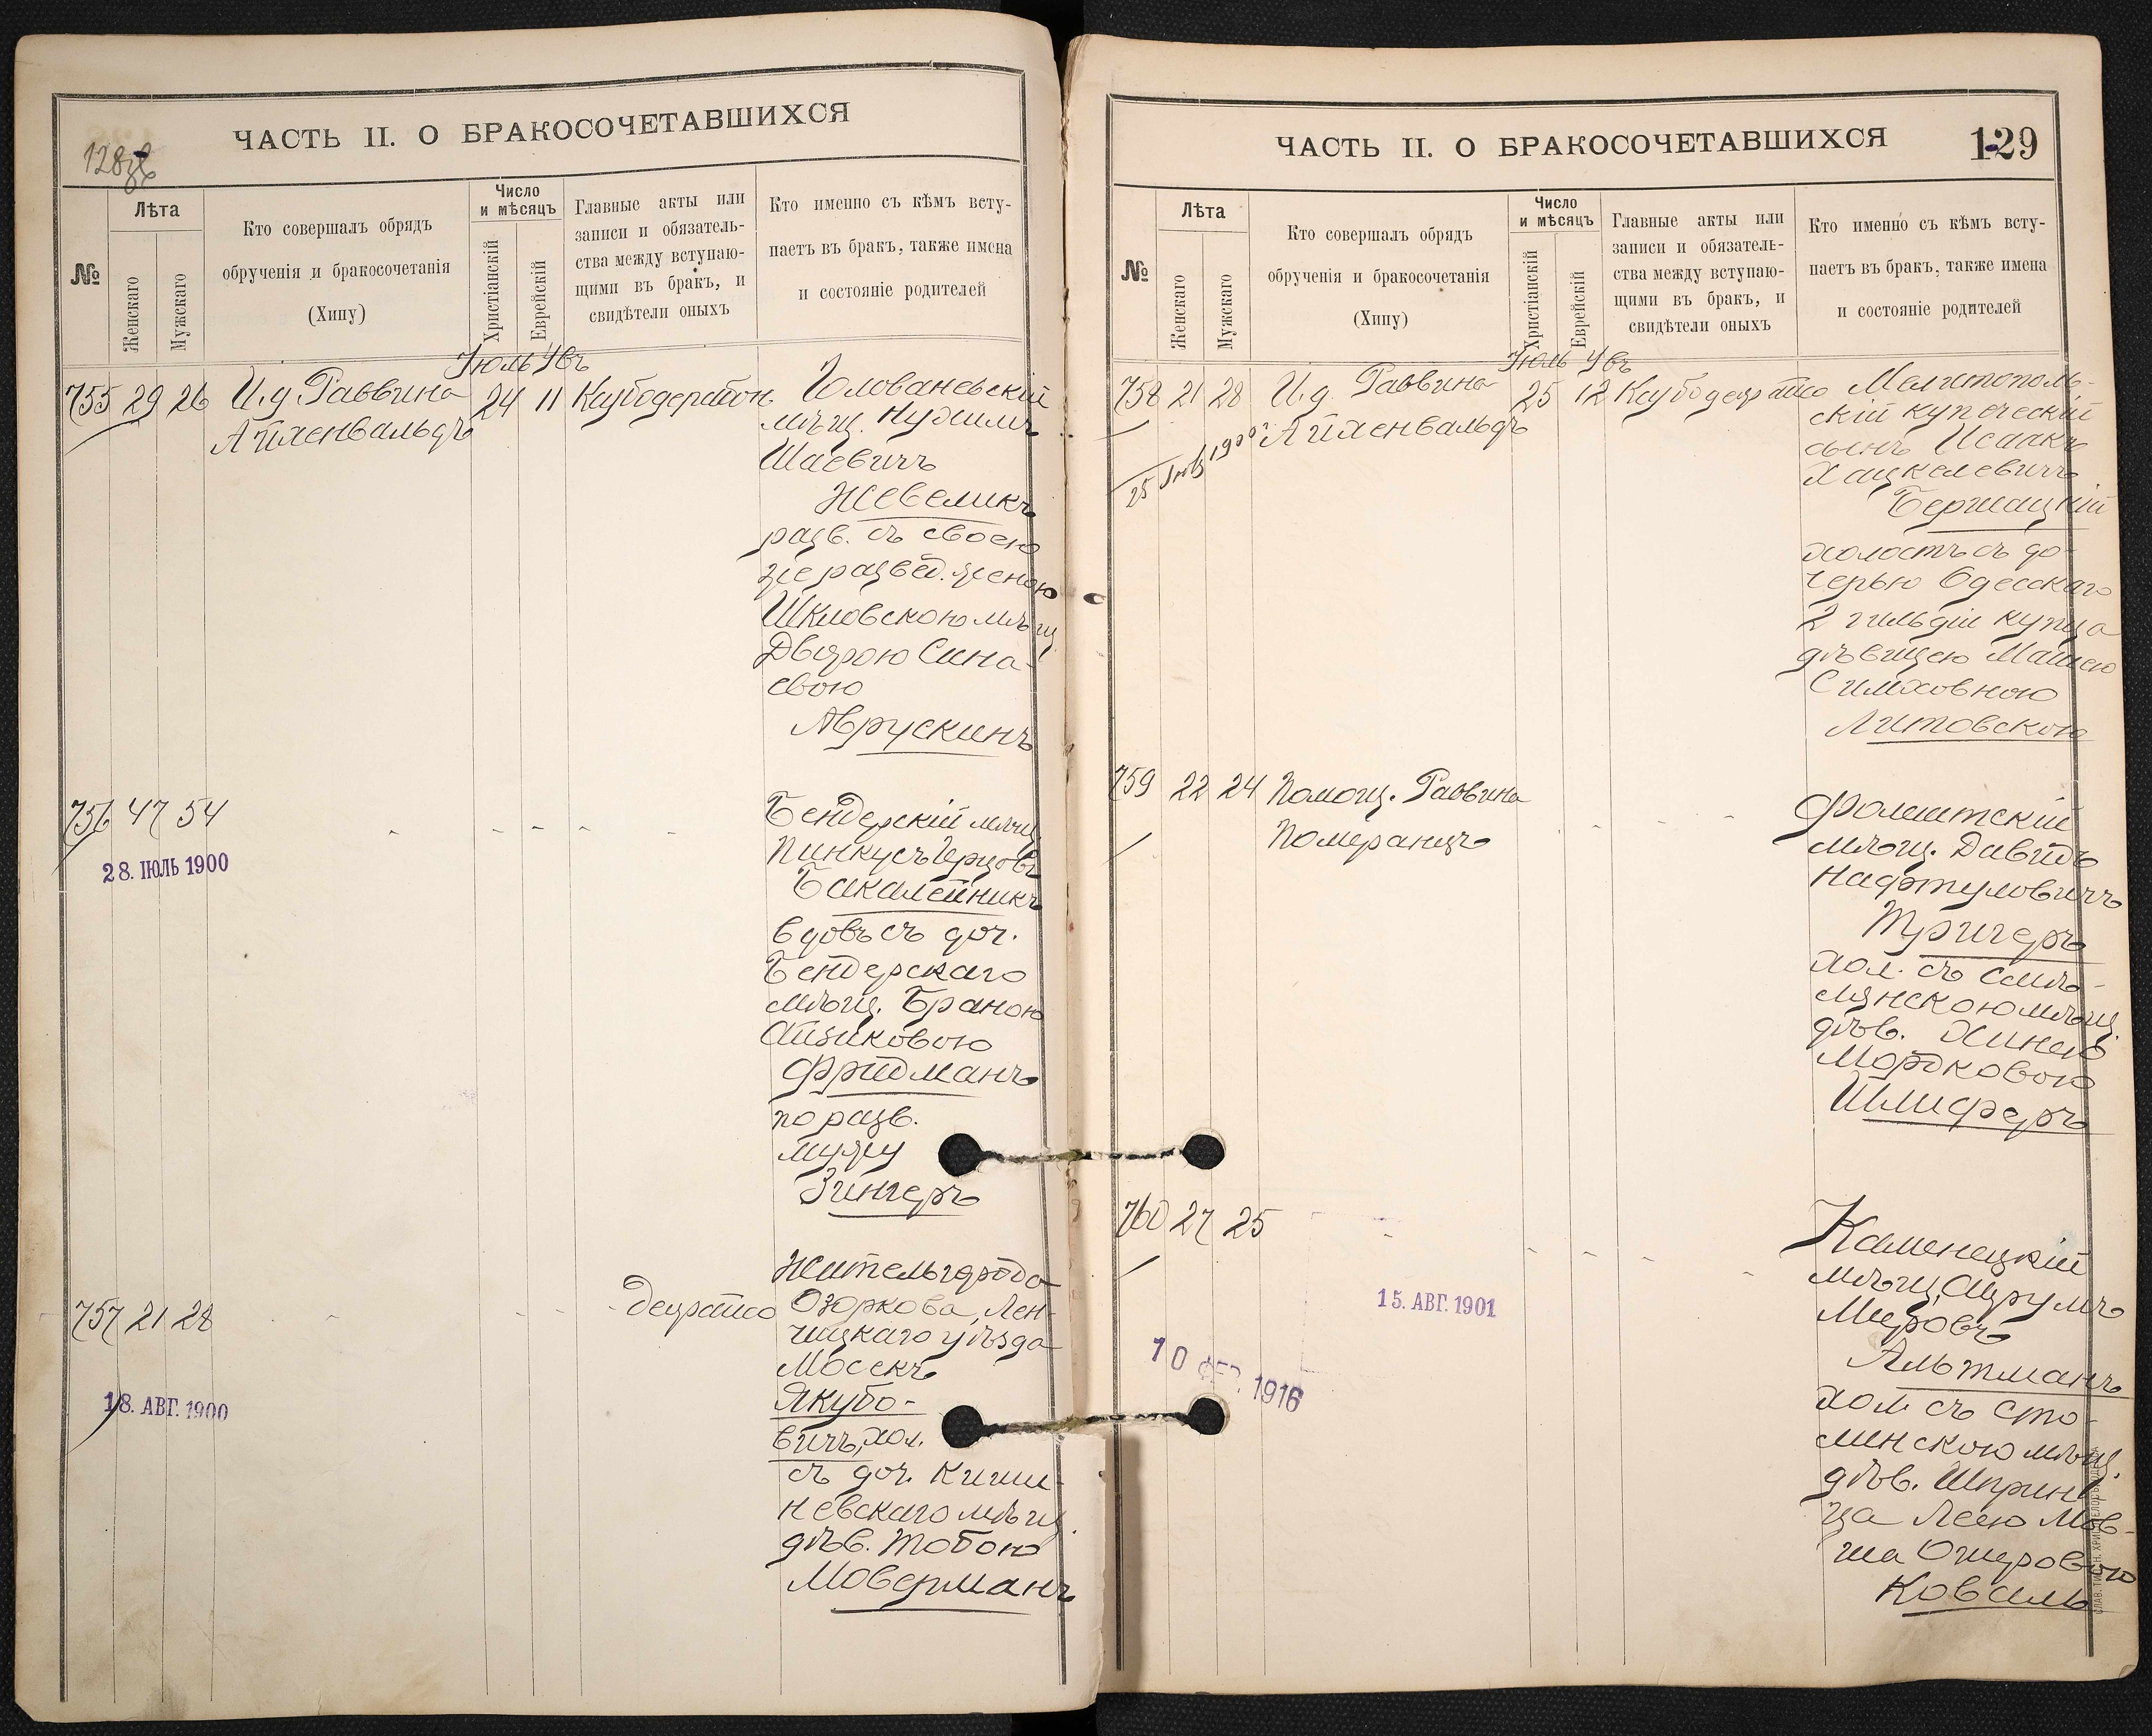 128 зв
ЧАСТЬ II. О БРАКОСОЧЕТАВШИХСЯ
№
Лѣта
Женскаго
Мужскаго
Кто совершалъ обрядъ
обрученія и бракосочетанія
(Хипу)
Число
и мѣсяцъ
Христіанскій
Еврейскій
Главные акты или
записи и обязатель-
ства между вступаю-
щими въ бракъ, и
свидѣтели оныхъ
Кто именно съ кѣмъ всту-
паетъ въ бракъ, также имена
и состояніе родителей
Іюль Увъ
755 29 26 И.д. Раввина 24 11
Айхенвальдъ
Голованевскій
мѣщ. Нухимъ
Шаевичъ
Жевеликъ
разв. съ своею
же развед. женою
Шкловскою мѣщ.
Двейрою Сина-
евою
Аврускинъ
756 47 54
28. ІЮЛЬ 1900
Бендерскій мѣщ.
Пинкусъ Герцовъ
Бакалейникъ
вдовъ съ доч.
Бендерскаго
мѣщ. Браною
Айзиковою
Фридманъ
по разв.
мужу
Зингеръ
757 21 28
18. АВГ. 1900
Житель города
Озоркова, Лен-
чицкаго уѣзда
Мосекъ
Якубо-
вичъ, хол.
съ доч. Киши-
невскаго мѣщ.
дѣв. Тобою
Моверманъ
ЧАСТЬ II. О БРАКОСОЧЕТАВШИХСЯ
129
№
Лѣта
Женскаго
Мужскаго
Кто совершалъ обрядъ
обрученія и бракосочетанія
(Хипу)
Число
и мѣсяцъ
Христіанскій
Еврейскій
Главные акты или
записи и обязатель-
ства между вступаю-
щими въ бракъ, и
свидѣтели оныхъ
Кто именно съ кѣмъ всту-
паетъ въ бракъ, также имена
и состояніе родителей
Іюль Увъ
758 21 28 И.д. Раввина 25 12
Айхенвальдъ
Мелитополь-
скій купеческій
сынъ Исаакъ
Хацкелевичъ
Бершацкій
холостъ съ до-
черью Одесскаго
2 гильдіи купца
дѣвицею Маніею
Симховною
Литовскою
759 22 24 Помощ. Раввина
Померанцъ
Фалештскій
мѣщ. Давидъ
Нафтуловичъ
Тригеръ
хол. съ Смѣ-
лянскою мѣщ.
дѣв. Хинею
Мордковою
Шлиферъ
760 27 25
15. АВГ. 1901
10 ФЕВ. 1916
Каменецкій
мѣщ. Сруль
Меровъ
Альтманъ
хол. съ Сто-
линскою мѣщ.
дѣв. Шприн-
ца Леею Мов-
ша Ошеровою
Коваль